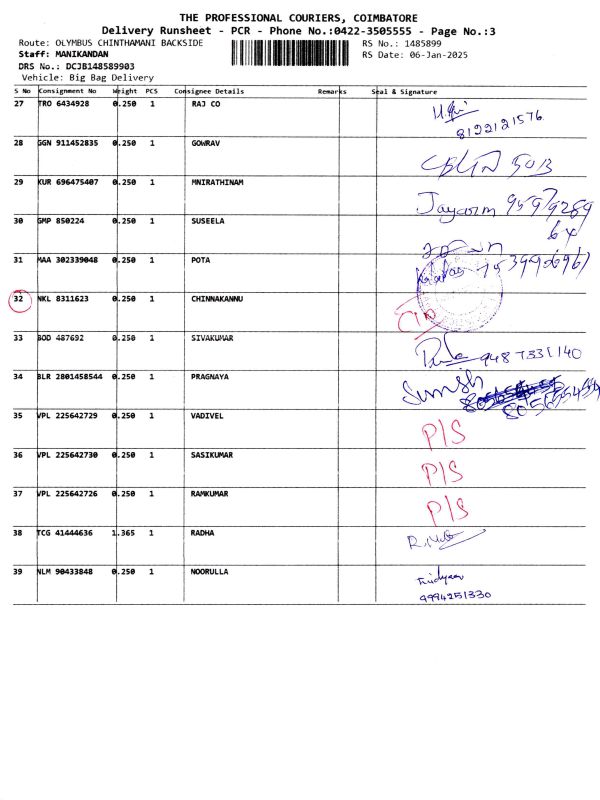 THE PROFESSIONAL COURIERS, COIMBATORE
Delivery Runsheet - PCR - Phone No.:0422-3505555 - Page No.:3
Route: OLYMBUS CHINTHAMANI BACKSIDE
RS No.: 1485899
Staff: MANIKANDAN
RS Date: 06-Jan-2025
DRS No.: DCJB148589903
Vehicle: Big Bag Delivery
S No Consignment No Weight PCS Consignee Details Remarks Seal & Signature
27 TRO 6434928 0.250 1 RAJ CO
8122121576
28 GGN 911452835 0.250 1 GOWRAV
29 KUR 696475407 0.250 1 MNIRATHINAM
Jayaram 95979289
64
30 GMP 850224 0.250 1 SUSEELA
31 MAA 302339048 0.250 1 POTA
32 NKL 8311623 0.250 1 CHINNAKANNU
33 BOD 487692 0.250 1 SIVAKUMAR
9487331140
34 BLR 2801458544 0.250 1 PRAGNAYA
35 VPL 225642729 0.250 1 VADIVEL
P/S
36 VPL 225642730 0.250 1 SASIKUMAR
P/S
37 VPL 225642726 0.250 1 RAMKUMAR
P/S
38 TCG 41444636 1.365 1 RADHA
39 NLM 90433848 0.250 1 NOORULLA
9994251330